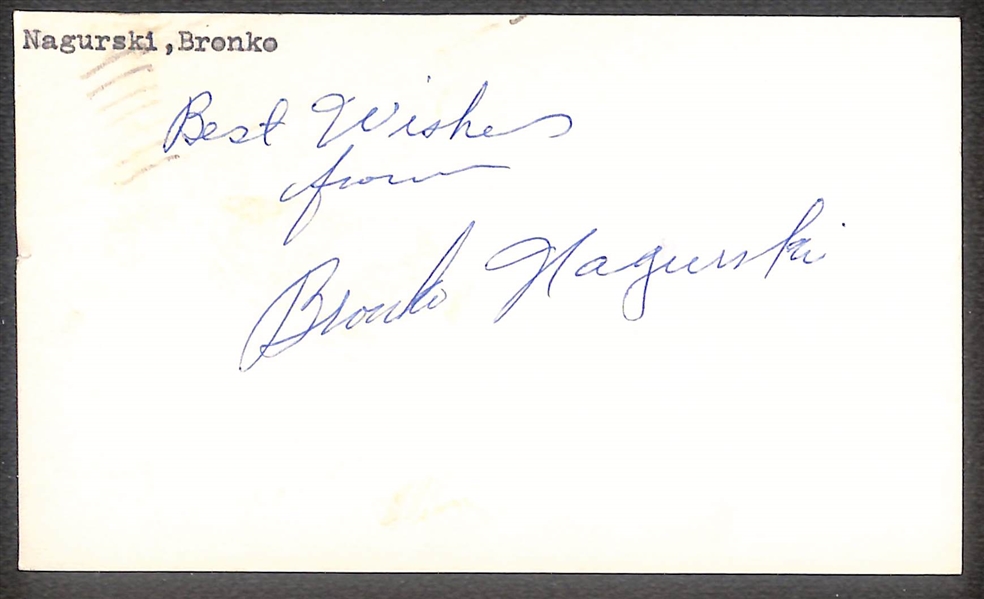 Nagurski,Bronko
Best Wishes
from
Bronko Nagurski